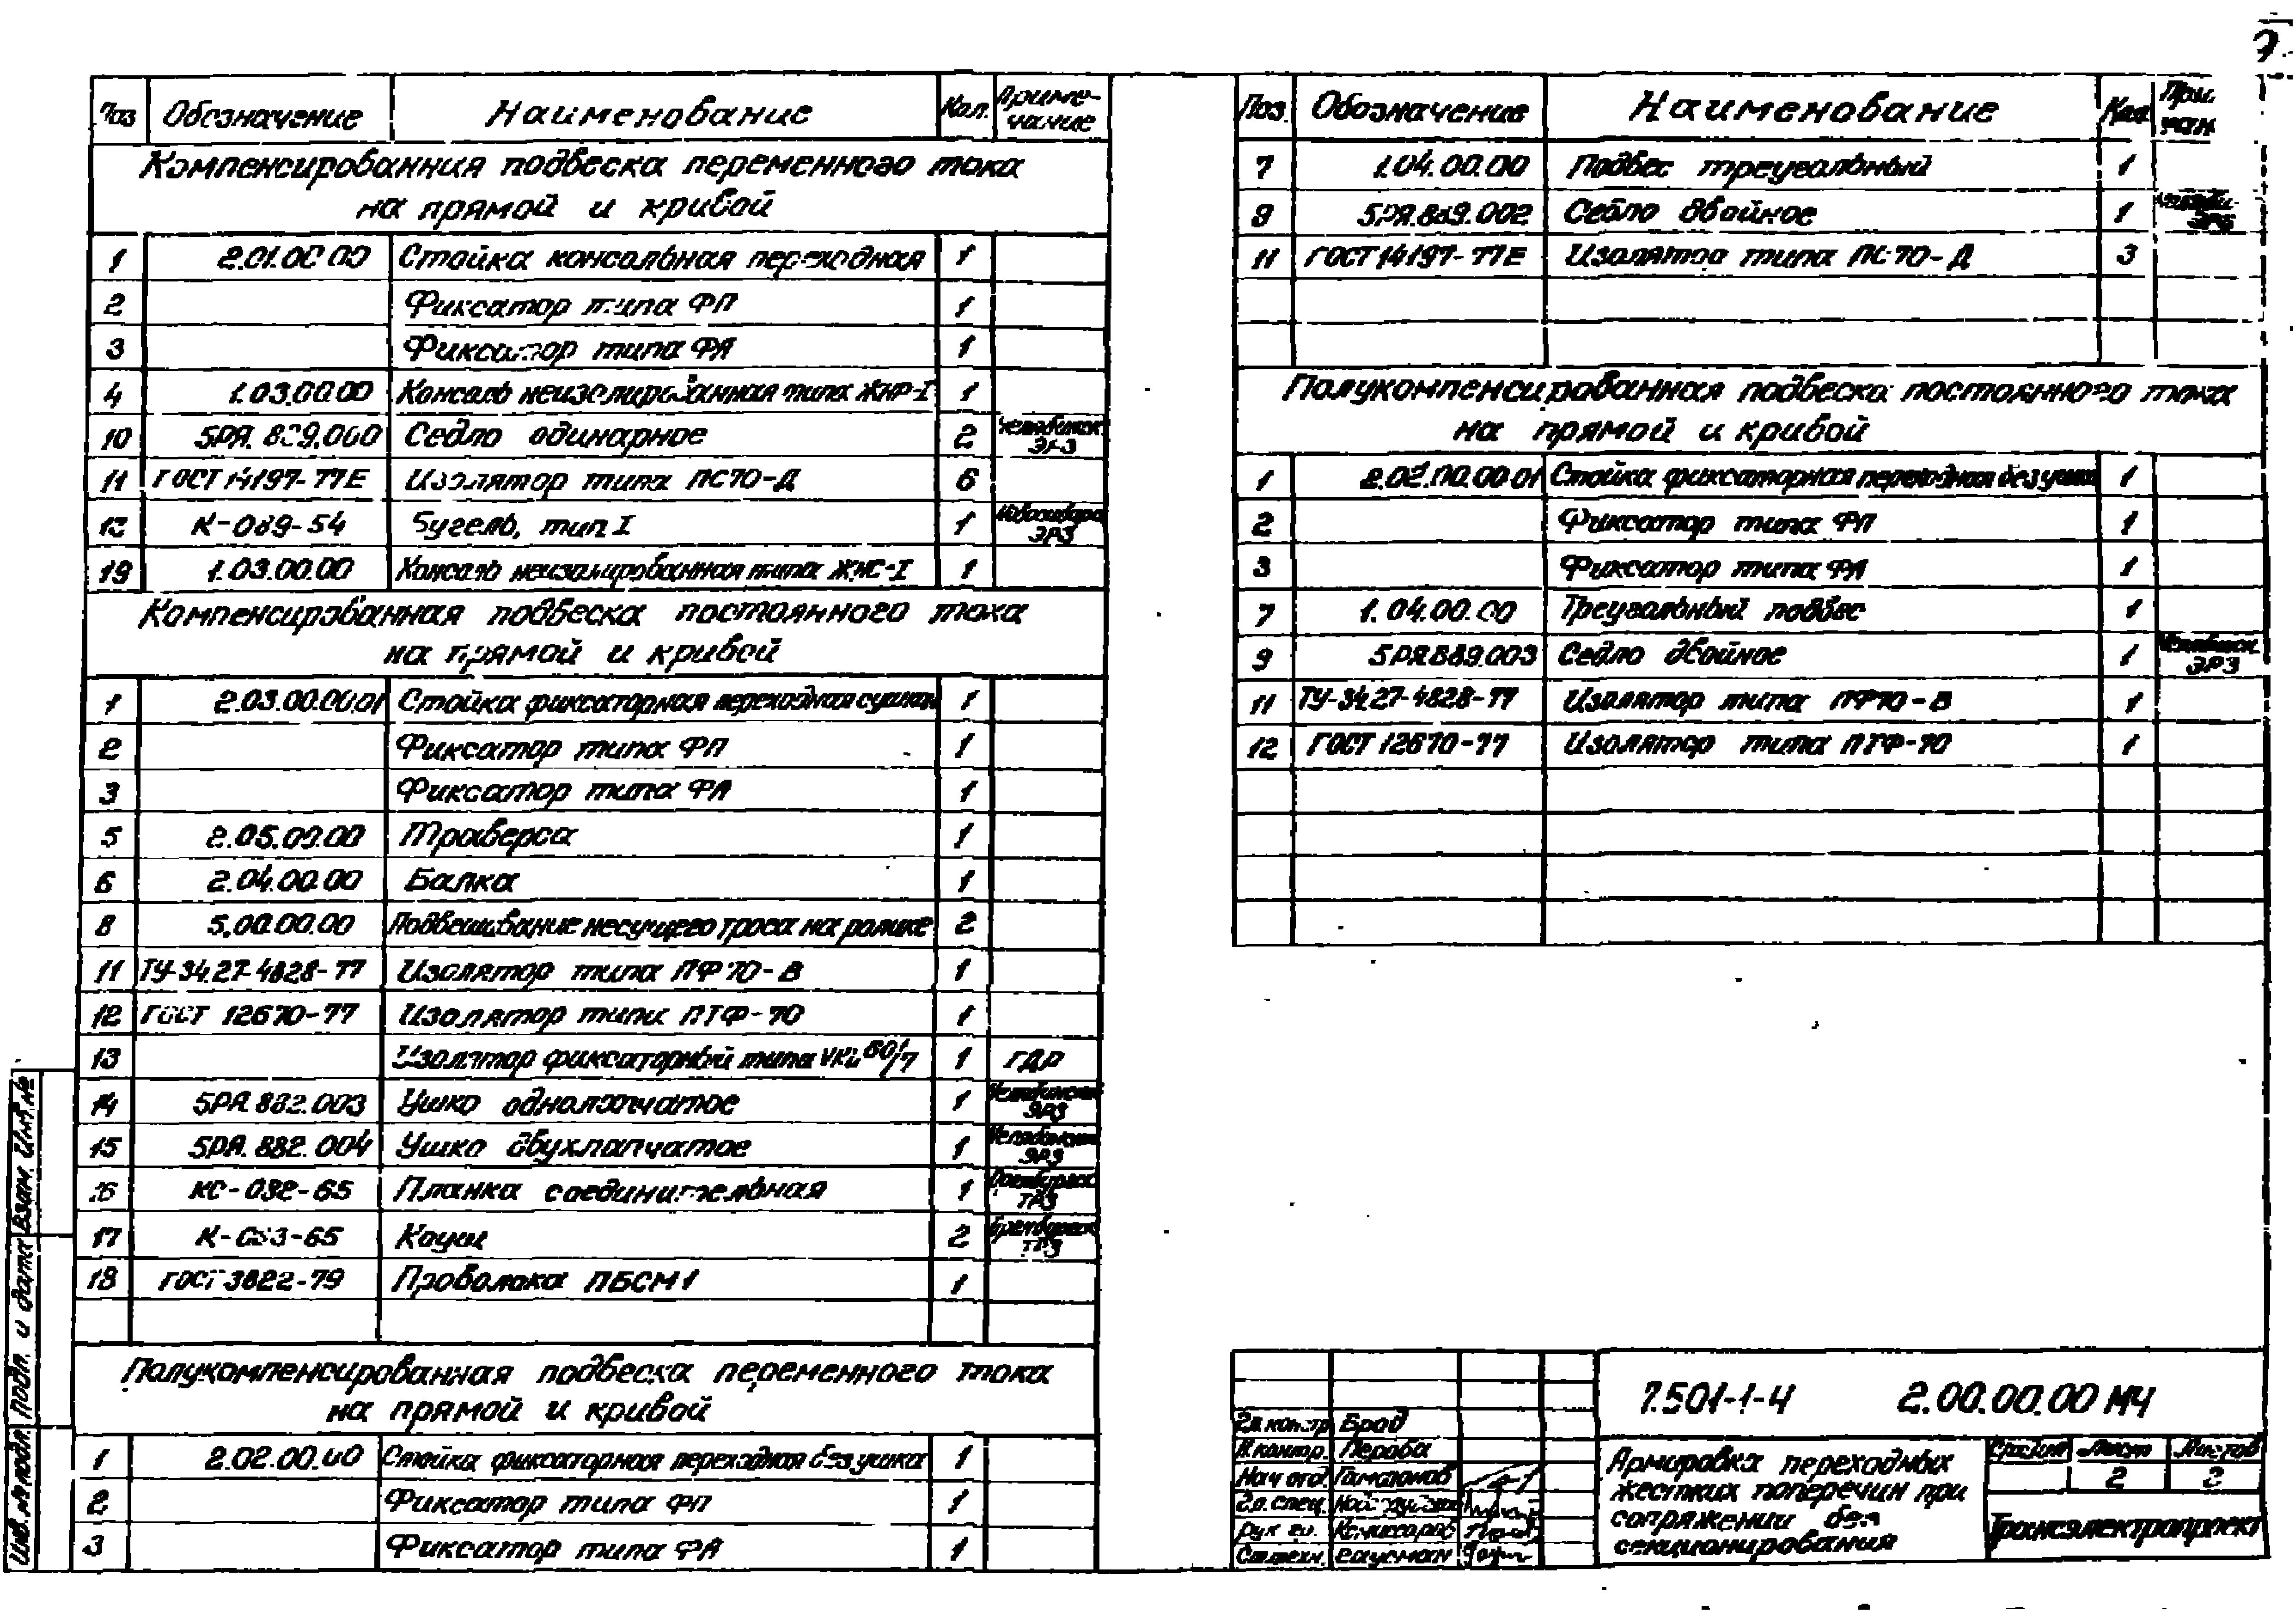 7
Поз Обозначение Наименование Кол. Приме-
чание
Компенсированния подвеска переменного тока
на прямой и кривой
1 2.01.00 00 Стойка консольная переходная 1
2 Фиксатор типа ФП 1
3 Фиксатор типа ФА 1
4 1.03.00.00 Консоль неизолированная типа ЖНР-I 1
10 5РЯ. 889.060 Седло одинарное 2 Челябинск.
ЭРЗ
11 ГОСТ 14197-77Е Изолятор типа ПС70-Д 6
К-089-54 Бугель, тип I 1
ЭРЗ
19 1.03.00.00 Консоль неизолированная типа ЖНС-I 1
Компенсированная подвеска постоянного тока
на прямой и кривой
1 2.03.00.00.01 Стойка фиксаторная переходная с ушком 1
2 Фиксатор типа ФП 1
3 Фиксатор типа ФА 1
5 2.05.00.00 Траверса 1
6 2.04.00.00 Балка 1
8 5.00.00.00 Подвешивание несущего троса на ролике 2
11 ТУ-34.27-4828-77 Изолятор типа ПФ70-В 1
12 ГОСТ 12670-77 Изолятор типа ПТФ-70 1
13 Изолятор фиксаторный типа VKL 60/7 1 ГДР
14 5РЯ.882.003 Ушко однолапчатое 1 Челябинский
ЭРЗ
15 5РЯ.882.004 Ушко двухлапчатое 1 Челябинский
ЭРЗ
16 КС-032-65 Планка соединительная 1
ТРЗ
17 К-083-65 Коуш 2
ТРЗ
18 ГОСТ 3822-79 Проволока ПБСМ1 1
Полукомпенсированная подвеска переменного тока
на прямой и кривой
1 2.02.00.00 Стойка фиксаторная переходная без ушка 1
2 Фиксатор типа ФП 1
3 Фиксатор типа ФА 1
Поз. Обозначение Наименование Кол
7 1.04.00.00 Подвес треугольный 1
9 5РЯ.889.002 Седло двойное 1
11 ГОСТ 14197-77Е Изолятор типа ПС70-Д 3
Полукомпенсированная подвеска постоянного тока
на прямой и кривой
1 2.02.00.00-01 Стойка фиксаторная переходная без ушка 1
2 Фиксатор типа ФП 1
3 Фиксатор типа ФА 1
7 1.04.00.00 Треугольный подвес 1
9 5РЯ.889.003 Седло двойное 1 Челябинск.
ЭРЗ
11 ТУ-34.27-4828-77 Изолятор типа ПФ70-В 1
12 ГОСТ 12670-77 Изолятор типа ПТФ-70 1
7.501-1-4 2.00.00.00 МЧ
Гл. контр. Брод
Н.контр. Перова
Нач отд. Гамаюнов
Гл. спец.
Рук. гр. Комиссаров
Ст.техн. Гаусман
Армировка переходных
жестких поперечин при
сопряжении без
секционирования
Стадия Лист Листов
2 2
Трансэлектропроект
Инв.№подл. Подп. и дата Взам. Инв.№